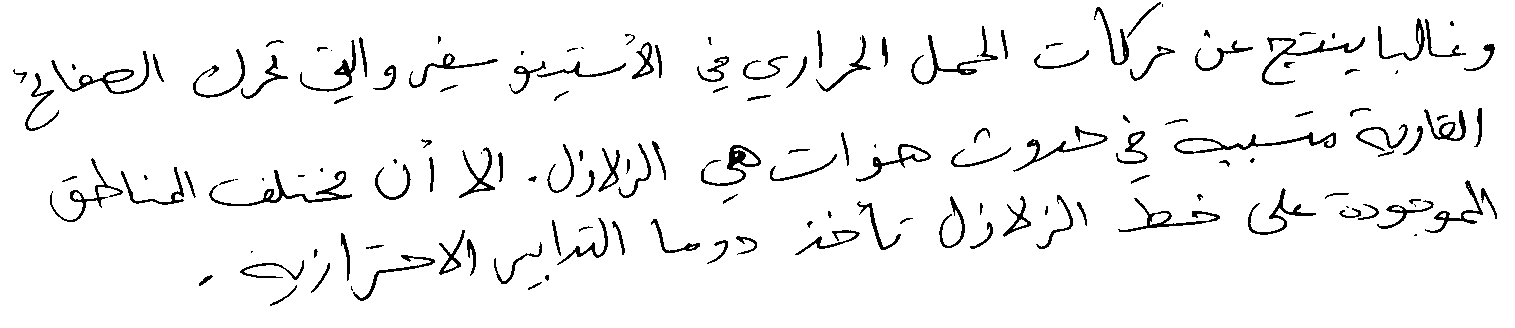 وغالبا ينتج عن حركات الحمل الحراري في الأستينوسفير والتي تحرك الصفائح
القارية متسببة في حدوث هزات هي الزلازل. الا أن مختلف المناطق
الموجودة على خط الزلازل تأخذ دوما التدابير الاحترازية.